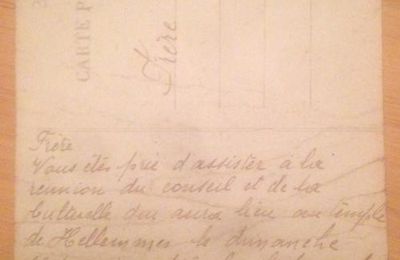 CARTE P
Frère
Frère
Vous êtes prié d'assister à la
reunion du conseil et de la
Cultuelle qui aura lieu au temple
de Hellemmes le dimanche